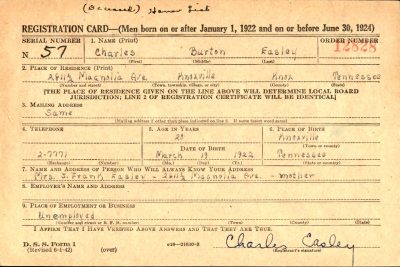 (Deceased) Honor List
REGISTRATION CARD—(Men born on or after January 1, 1922 and on or before June 30, 1924)
SERIAL NUMBER 1. NAME (Print) ORDER NUMBER
N 57 Charles Burton Easley 12828
(First) (Middle) (Last)
2. PLACE OF RESIDENCE (Print)
2611½ Magnolia Ave. Knoxville Knox Tennessee
(Number and street) (Town, township, village, or city) (County) (State)
[THE PLACE OF RESIDENCE GIVEN ON THE LINE ABOVE WILL DETERMINE LOCAL BOARD
JURISDICTION; LINE 2 OF REGISTRATION CERTIFICATE WILL BE IDENTICAL]
3. MAILING ADDRESS
Same
(Mailing address if other than place indicated on line 2. If same insert word same)
4. TELEPHONE 5. AGE IN YEARS 6. PLACE OF BIRTH
20 Knoxville
DATE OF BIRTH (Town or county)
2-7771 March 19 1922 Tennessee
(Exchange) (Number) (Mo.) (Day) (Yr.) (State or country)
7. NAME AND ADDRESS OF PERSON WHO WILL ALWAYS KNOW YOUR ADDRESS
Mrs. J. Frank Easley - 2611½ Magnolia Ave. - mother
8. EMPLOYER'S NAME AND ADDRESS
9. PLACE OF EMPLOYMENT OR BUSINESS
Unemployed
(Number and street or R. F. D. number) (Town) (County) (State)
I AFFIRM THAT I HAVE VERIFIED ABOVE ANSWERS AND THAT THEY ARE TRUE.
D. S. S. Form 1
(Revised 6-1-42) (over) Charles Easley
(Registrant's signature)